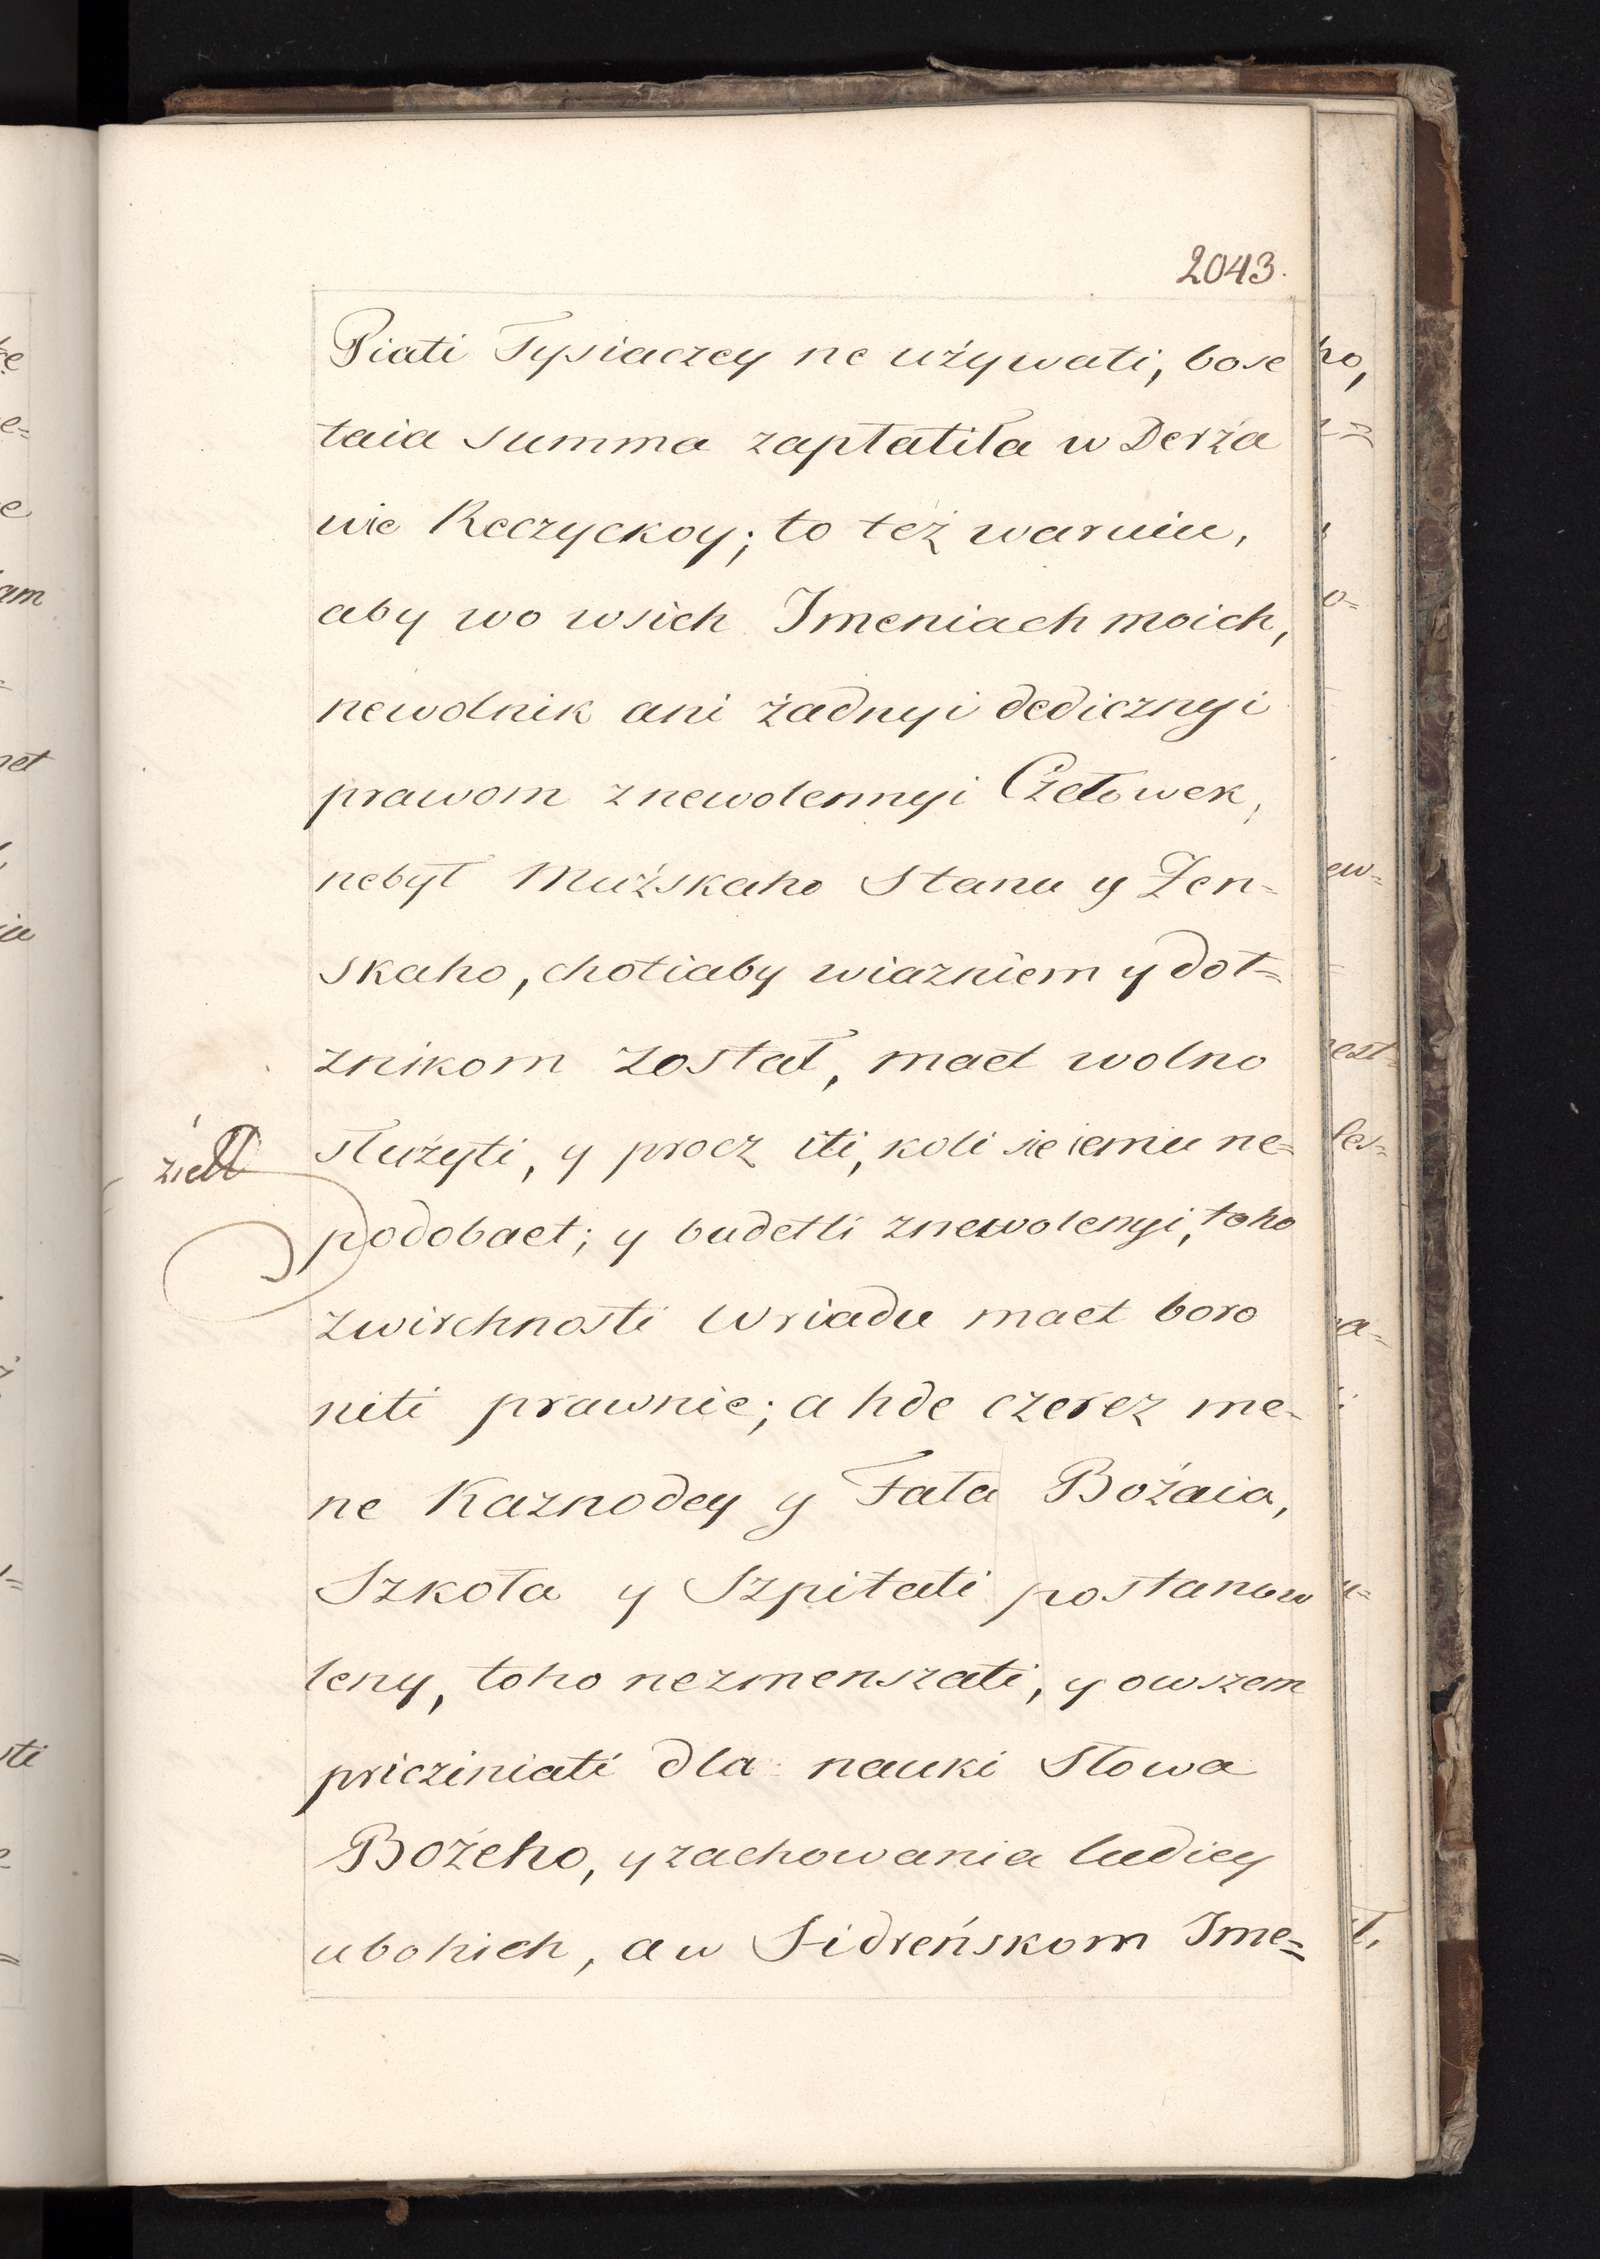 2043.
Piati Tysiaczey ne używati, bose
taia summa zapłatiła w Derża
wie Reczyckoy; to też waruiu,
aby wo wsich Imeniach moich,
newolnik ani żadnyi dedicznyi
prawom znewolennyi Człowek,
nebył Mużskaho Stanu y Żen-
skaho, chotiaby wiazniem y doł=
znikom został, maet wolno
służyti, y procz iti, koli sie iemu ne=
podobaet; y budetli znewolenyi, toho
zwirchnosti Wriadu maet boro
niti prawnie; a hde czerez me-
ne Kaznodey y Fała Bożaia,
Szkoła y Szpitali postanow
leny, toho nezmenszati, y owszem
pricziniati dla nauki Słowa
Bożeho, y zachowania ludiey
ubohich, a w Sidreńskom Ime=